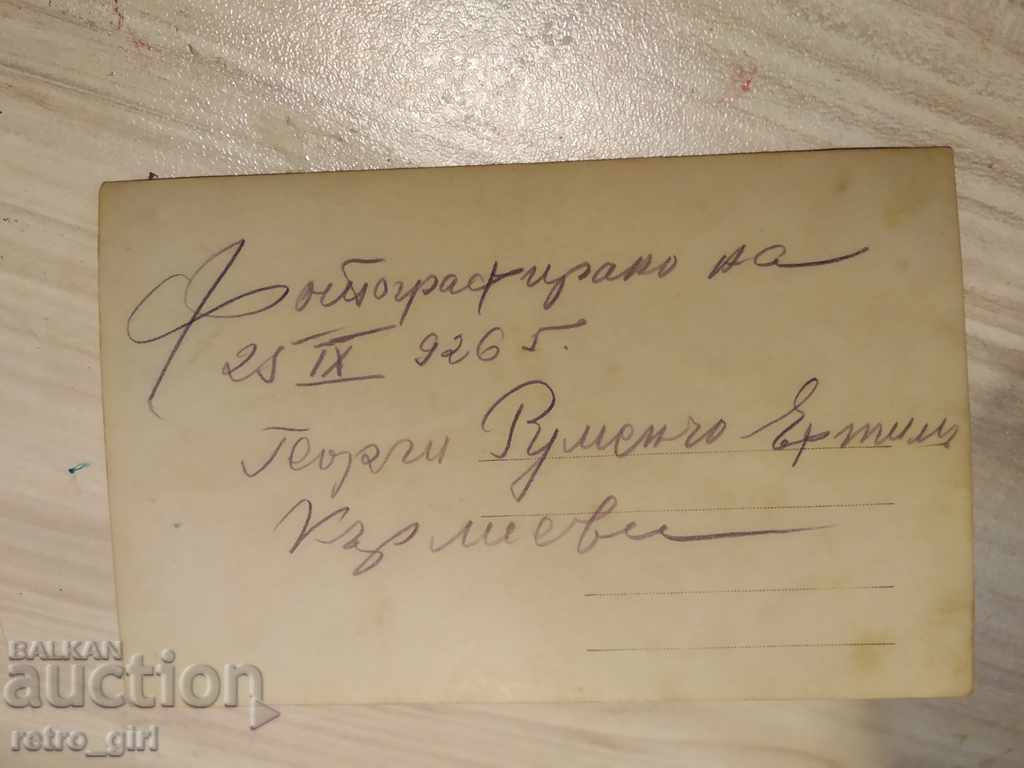 Фотографирано на
25 IX 926 г.
Георги Руменчо
Кърлиеви
BALKAN
auction
retro_girl